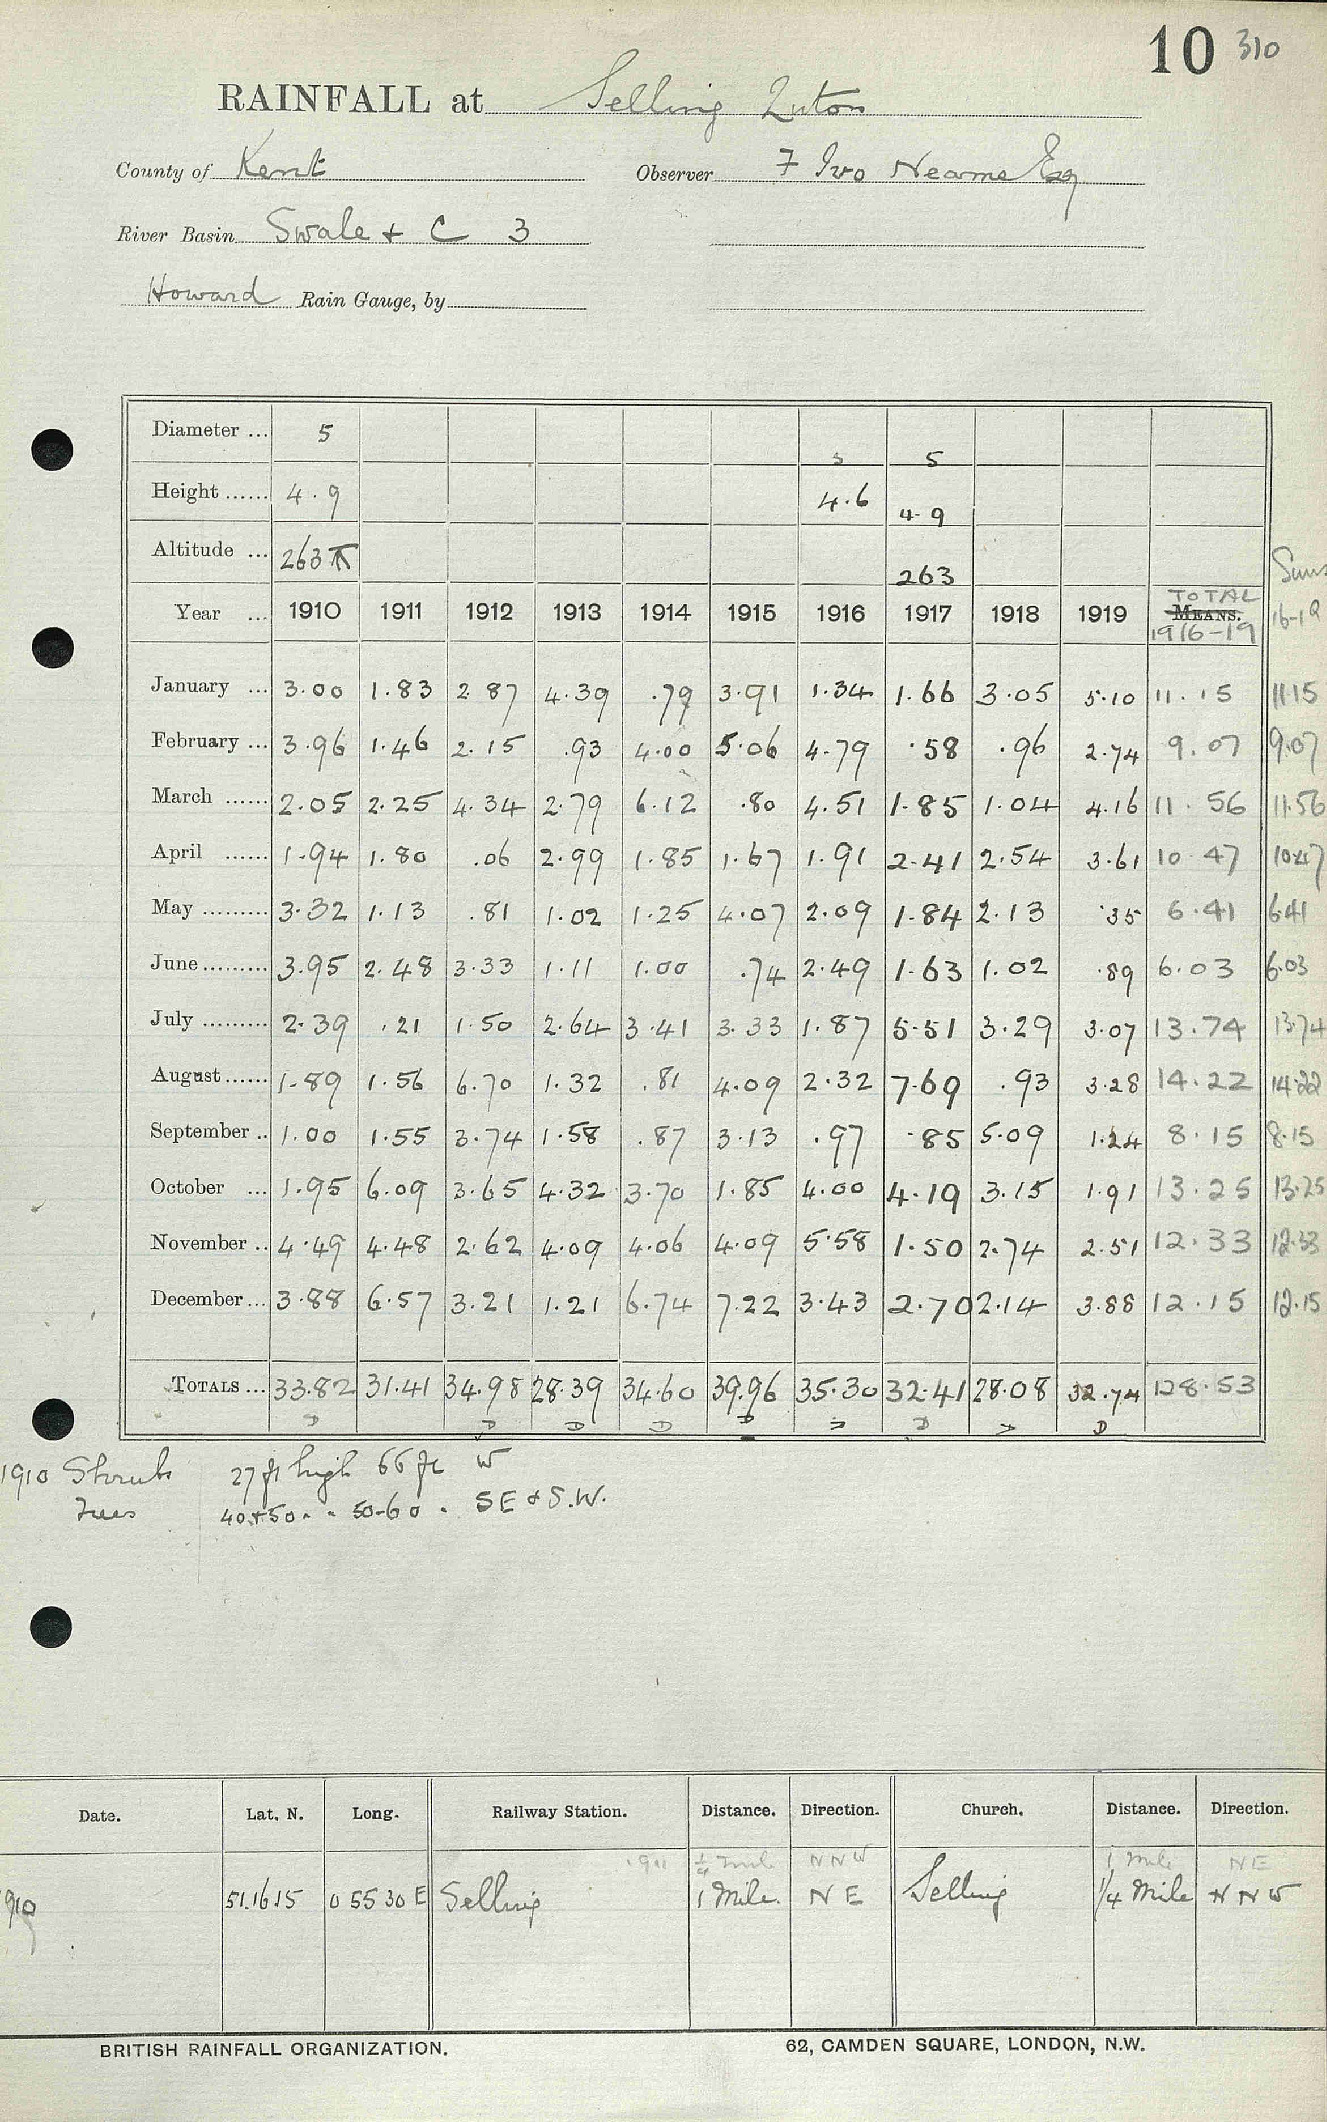 10 310
RAINFALL at Selling Luton
County of Kent Observer F Ivo Neame Esq
River Basin Swale + C 3
Howard Rain Gauge, by
Diameter ... 5 5 5
Height ...... 4.9 4.6 4.9
Altitude ... 263 263
Sums
Year ... 1910 1911 1912 1913 1914 1915 1916 1917 1918 1919 TOTAL MEANS. 1916-19 16-19
January ... 3.00 1.83 2.87 4.39 .79 3.91 1.34 1.66 3.05 5.10 11.15 11.15
February ... 3.96 1.46 2.15 .93 4.00 5.06 4.79 .58 .96 2.74 9.07 9.07
March ...... 2.05 2.25 4.34 2.79 6.12 .80 4.51 1.85 1.04 4.16 11.56 11.56
April ...... 1.94 1.80 .06 2.99 1.85 1.67 1.91 2.41 2.54 3.61 10.47 10.47
May ......... 3.32 1.13 .81 1.02 1.25 4.07 2.09 1.84 2.13 .35 6.41 6.41
June ......... 3.95 2.48 3.33 1.11 1.00 .74 2.49 1.63 1.02 .89 6.03 6.03
July ......... 2.39 .21 1.50 2.64 3.41 3.33 1.87 5.51 3.29 3.07 13.74 13.74
August ...... 1.89 1.56 6.70 1.32 .81 4.09 2.32 7.69 .93 3.28 14.22 14.22
September .. 1.00 1.55 3.74 1.58 .87 3.13 .97 .85 5.09 1.24 8.15 8.15
October ... 1.95 6.09 3.65 4.32 3.70 1.85 4.00 4.19 3.15 1.91 13.25 13.25
November .. 4.49 4.48 2.62 4.09 4.06 4.09 5.58 1.50 2.74 2.51 12.33 12.33
December ... 3.88 6.57 3.21 1.21 6.74 7.22 3.43 2.70 2.14 3.88 12.15 12.15
TOTALS ... 33.82 31.41 34.98 28.39 34.60 39.96 35.30 32.41 28.08 32.74 128.53
D D D D D D D D D
1910 Shrubs 27 ft high 66 ft W
Trees 40 + 50 " " 50-60 " SE & S.W.
Date. Lat. N. Long. Railway Station. Distance. Direction. Church. Distance. Direction.
1911 1/4 mile NNW 1 Mile NE
1910 51.16.15 0 55 30 E Selling 1 Mile. NE Selling 1/4 Mile NNW
BRITISH RAINFALL ORGANIZATION. 62, CAMDEN SQUARE, LONDON, N.W.